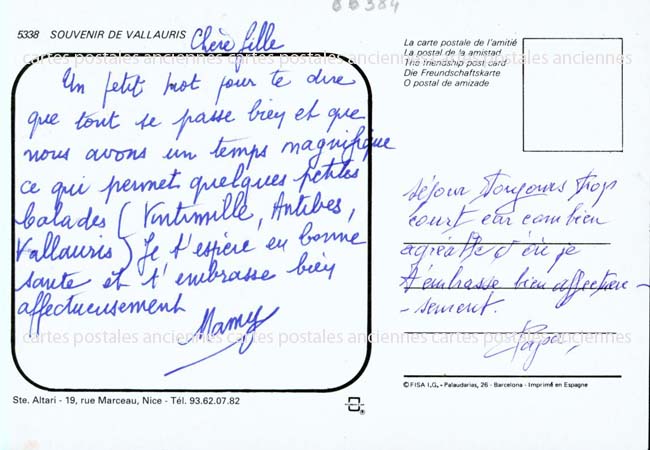 88384
5338 SOUVENIR DE VALLAURIS
Chère fille
Un petit mot pour te dire
que tout se passe bien et que
nous avons un temps magnifique
ce qui permet quelques petites
balades (Vintimille, Antibes,
Vallauris) Je t'espère en bonne
santé et t'embrasse bien
affectueusement
Mamy
La carte postale de l'amitié
La postal de la amistad
The friendship post card
Die Freundschaftskarte
O postal de amizade
séjour toujours trop
court car combien
agréable
t'embrasse bien affectueu-
-sement.
Papa
cartes postales anciennes cartes postales anciennes cartes postales anciennes
cartes postales anciennes cartes postales anciennes cartes postales anciennes
© FISA I.G. - Palaudarias, 26 - Barcelona - Imprimé en Espagne
Ste. Altari - 19, rue Marceau, Nice - Tél. 93.62.07.82